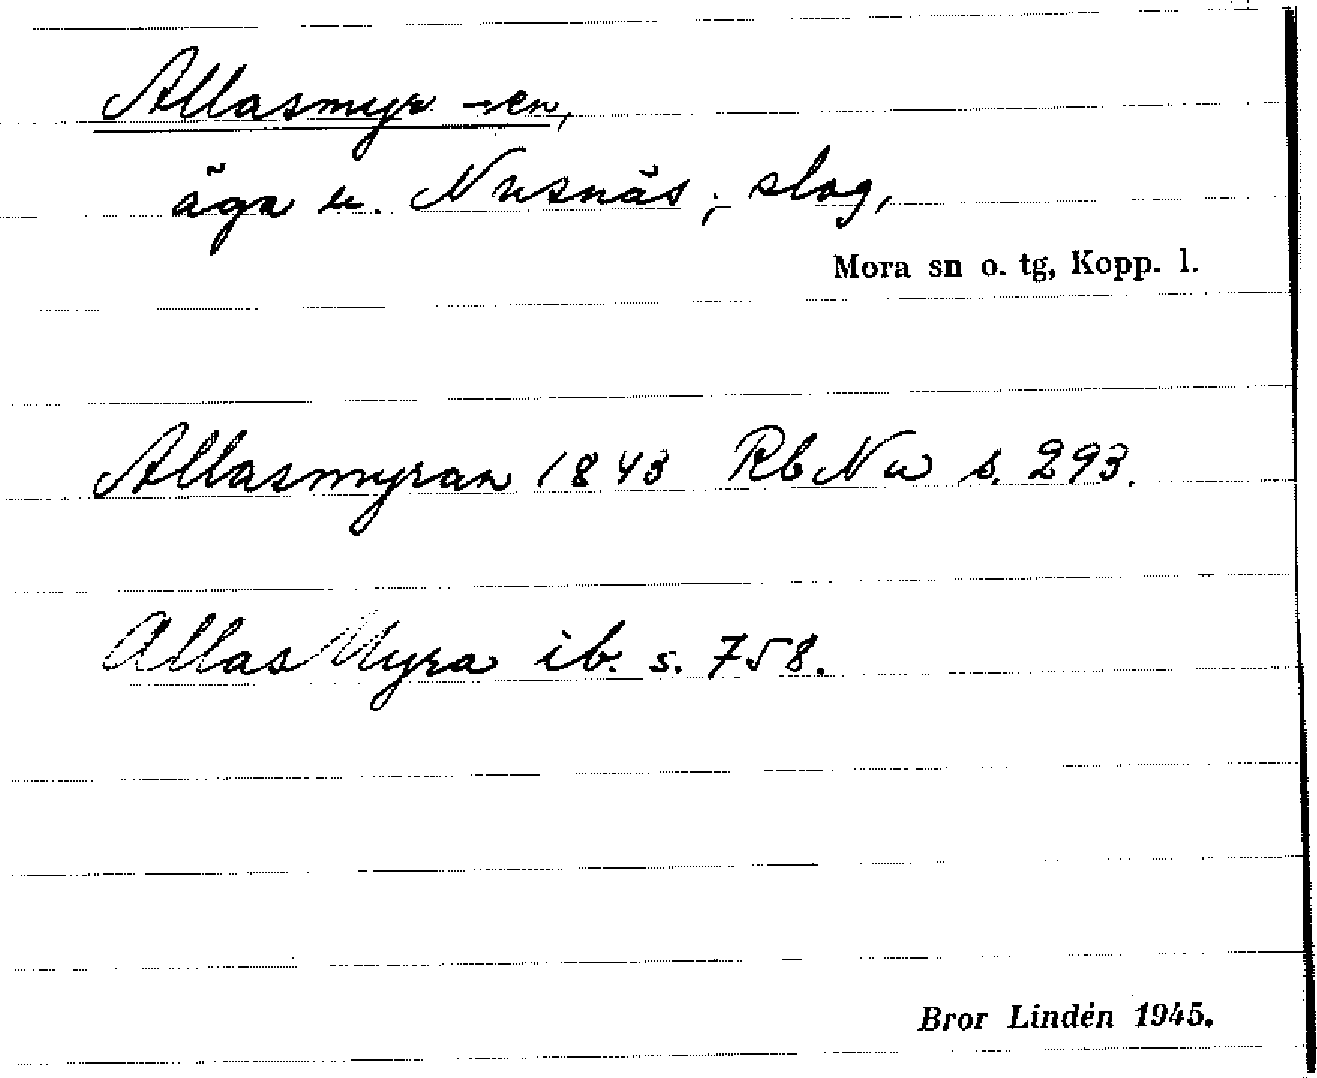 Allasmyr -en,
äga u. Nusnäs; slog,
Mora sn o. tg, Kopp. l.
Allasmyran 1843 Rb Nu s. 293.
Allas Myra ib. s. 758.
Bror Lindén 1945.